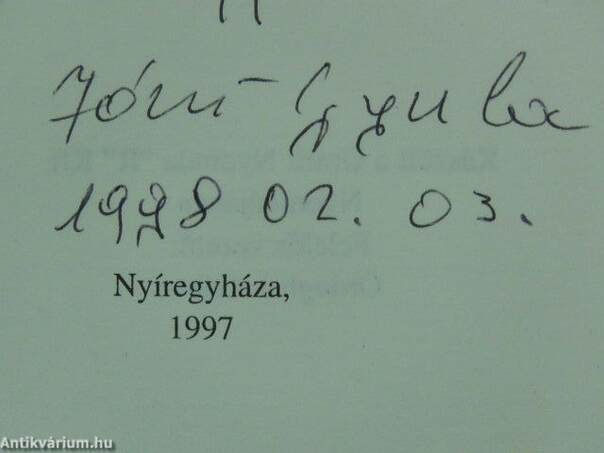 Jónű Gyula
1998 02. 03.
Nyíregyháza,
1997
Antikvárium.hu